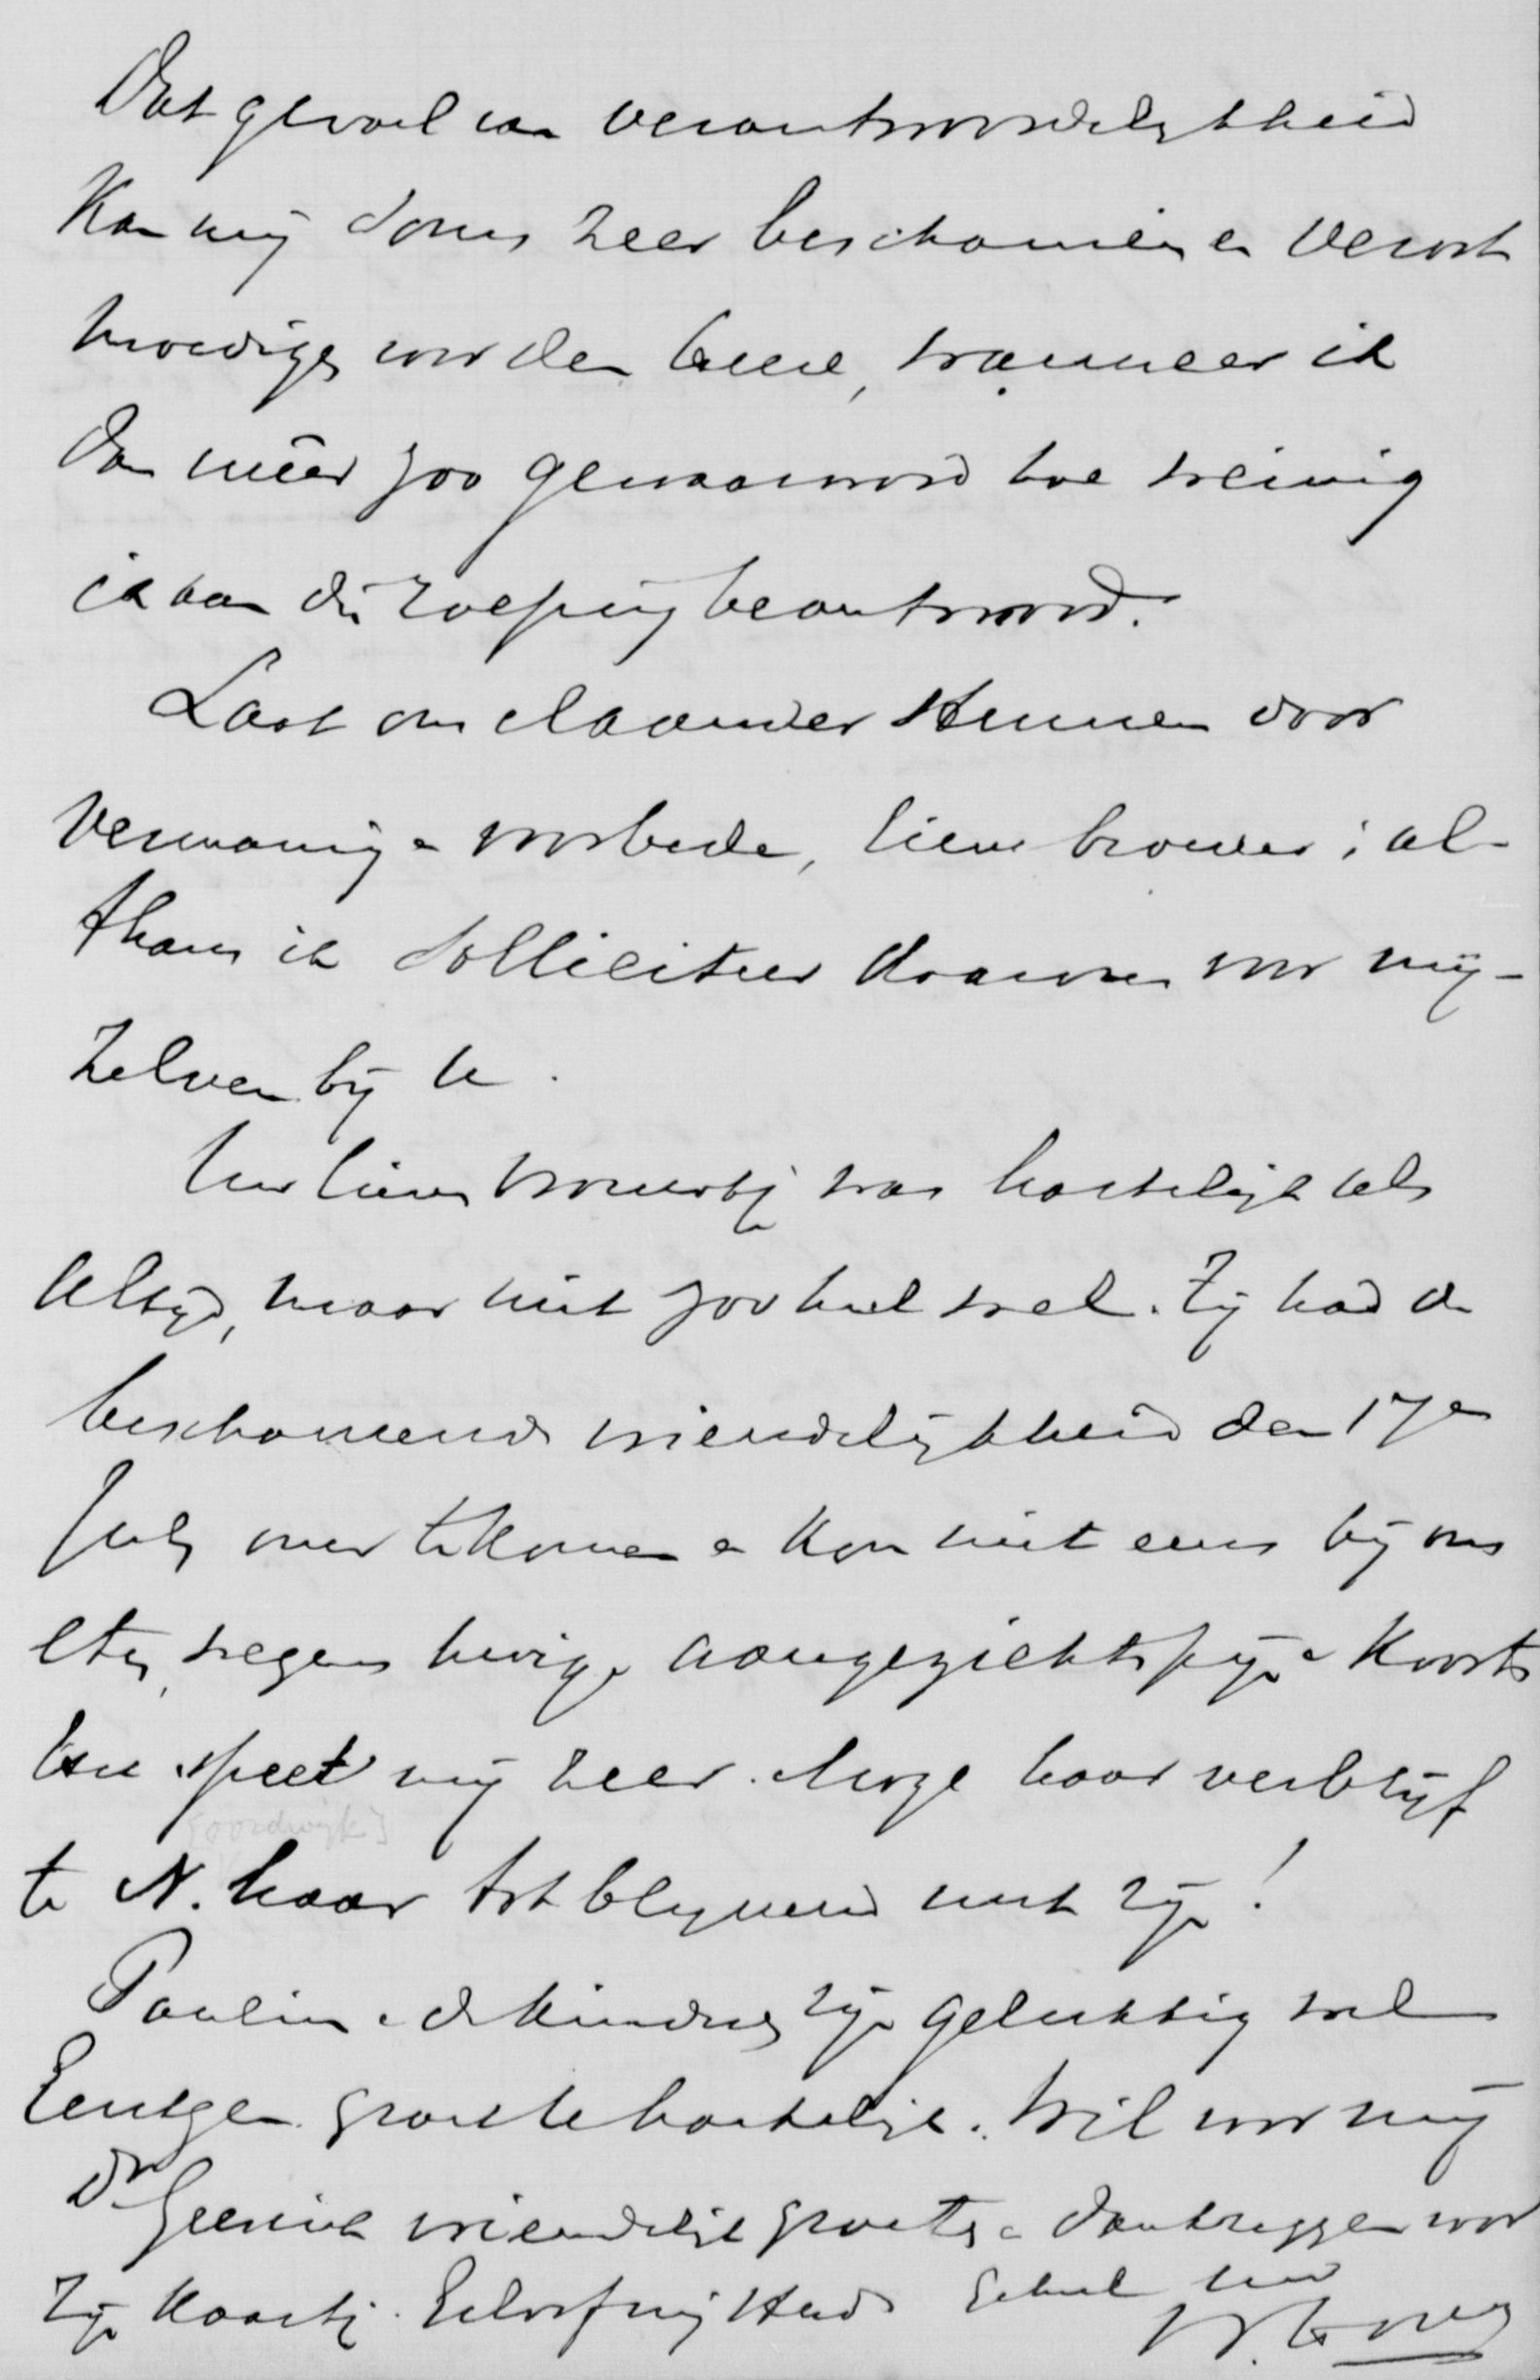 Dat gevoel van verantwoordelijkheid
kan mij soms zeer beschamen en veroot-
moedigen voor den Heere, wanneer ik
dan méér zoo gewaarword hoe weinig
ik aan die roeping beantwoord.
Laat ons elkander steunen door
vermaning en voorbede, lieve broeder; al-
thans ik solliciteer daarom voor mij-
zelven bij U.
Uw lieve vrouwtje was hartelijk als
altijd, maar niet zoo heel wel. Zij had de
beschamende vriendelijkheid den 17en
July over te komen en kon niet eens bij ons
eten, wegens hevige aangezichtspijn en koorts
speet mij zeer. Moge haar verblijf
[oordwijk]
te N. haar tot blijvend nut zijn!
Pauline en de kinderen zijn gelukkig wel
groet U hartelijk. Wil voor mij
Dr vriendelijk groeten en dankzeggen voor
zijn kaartje. Geloof mij steeds geheel Uw